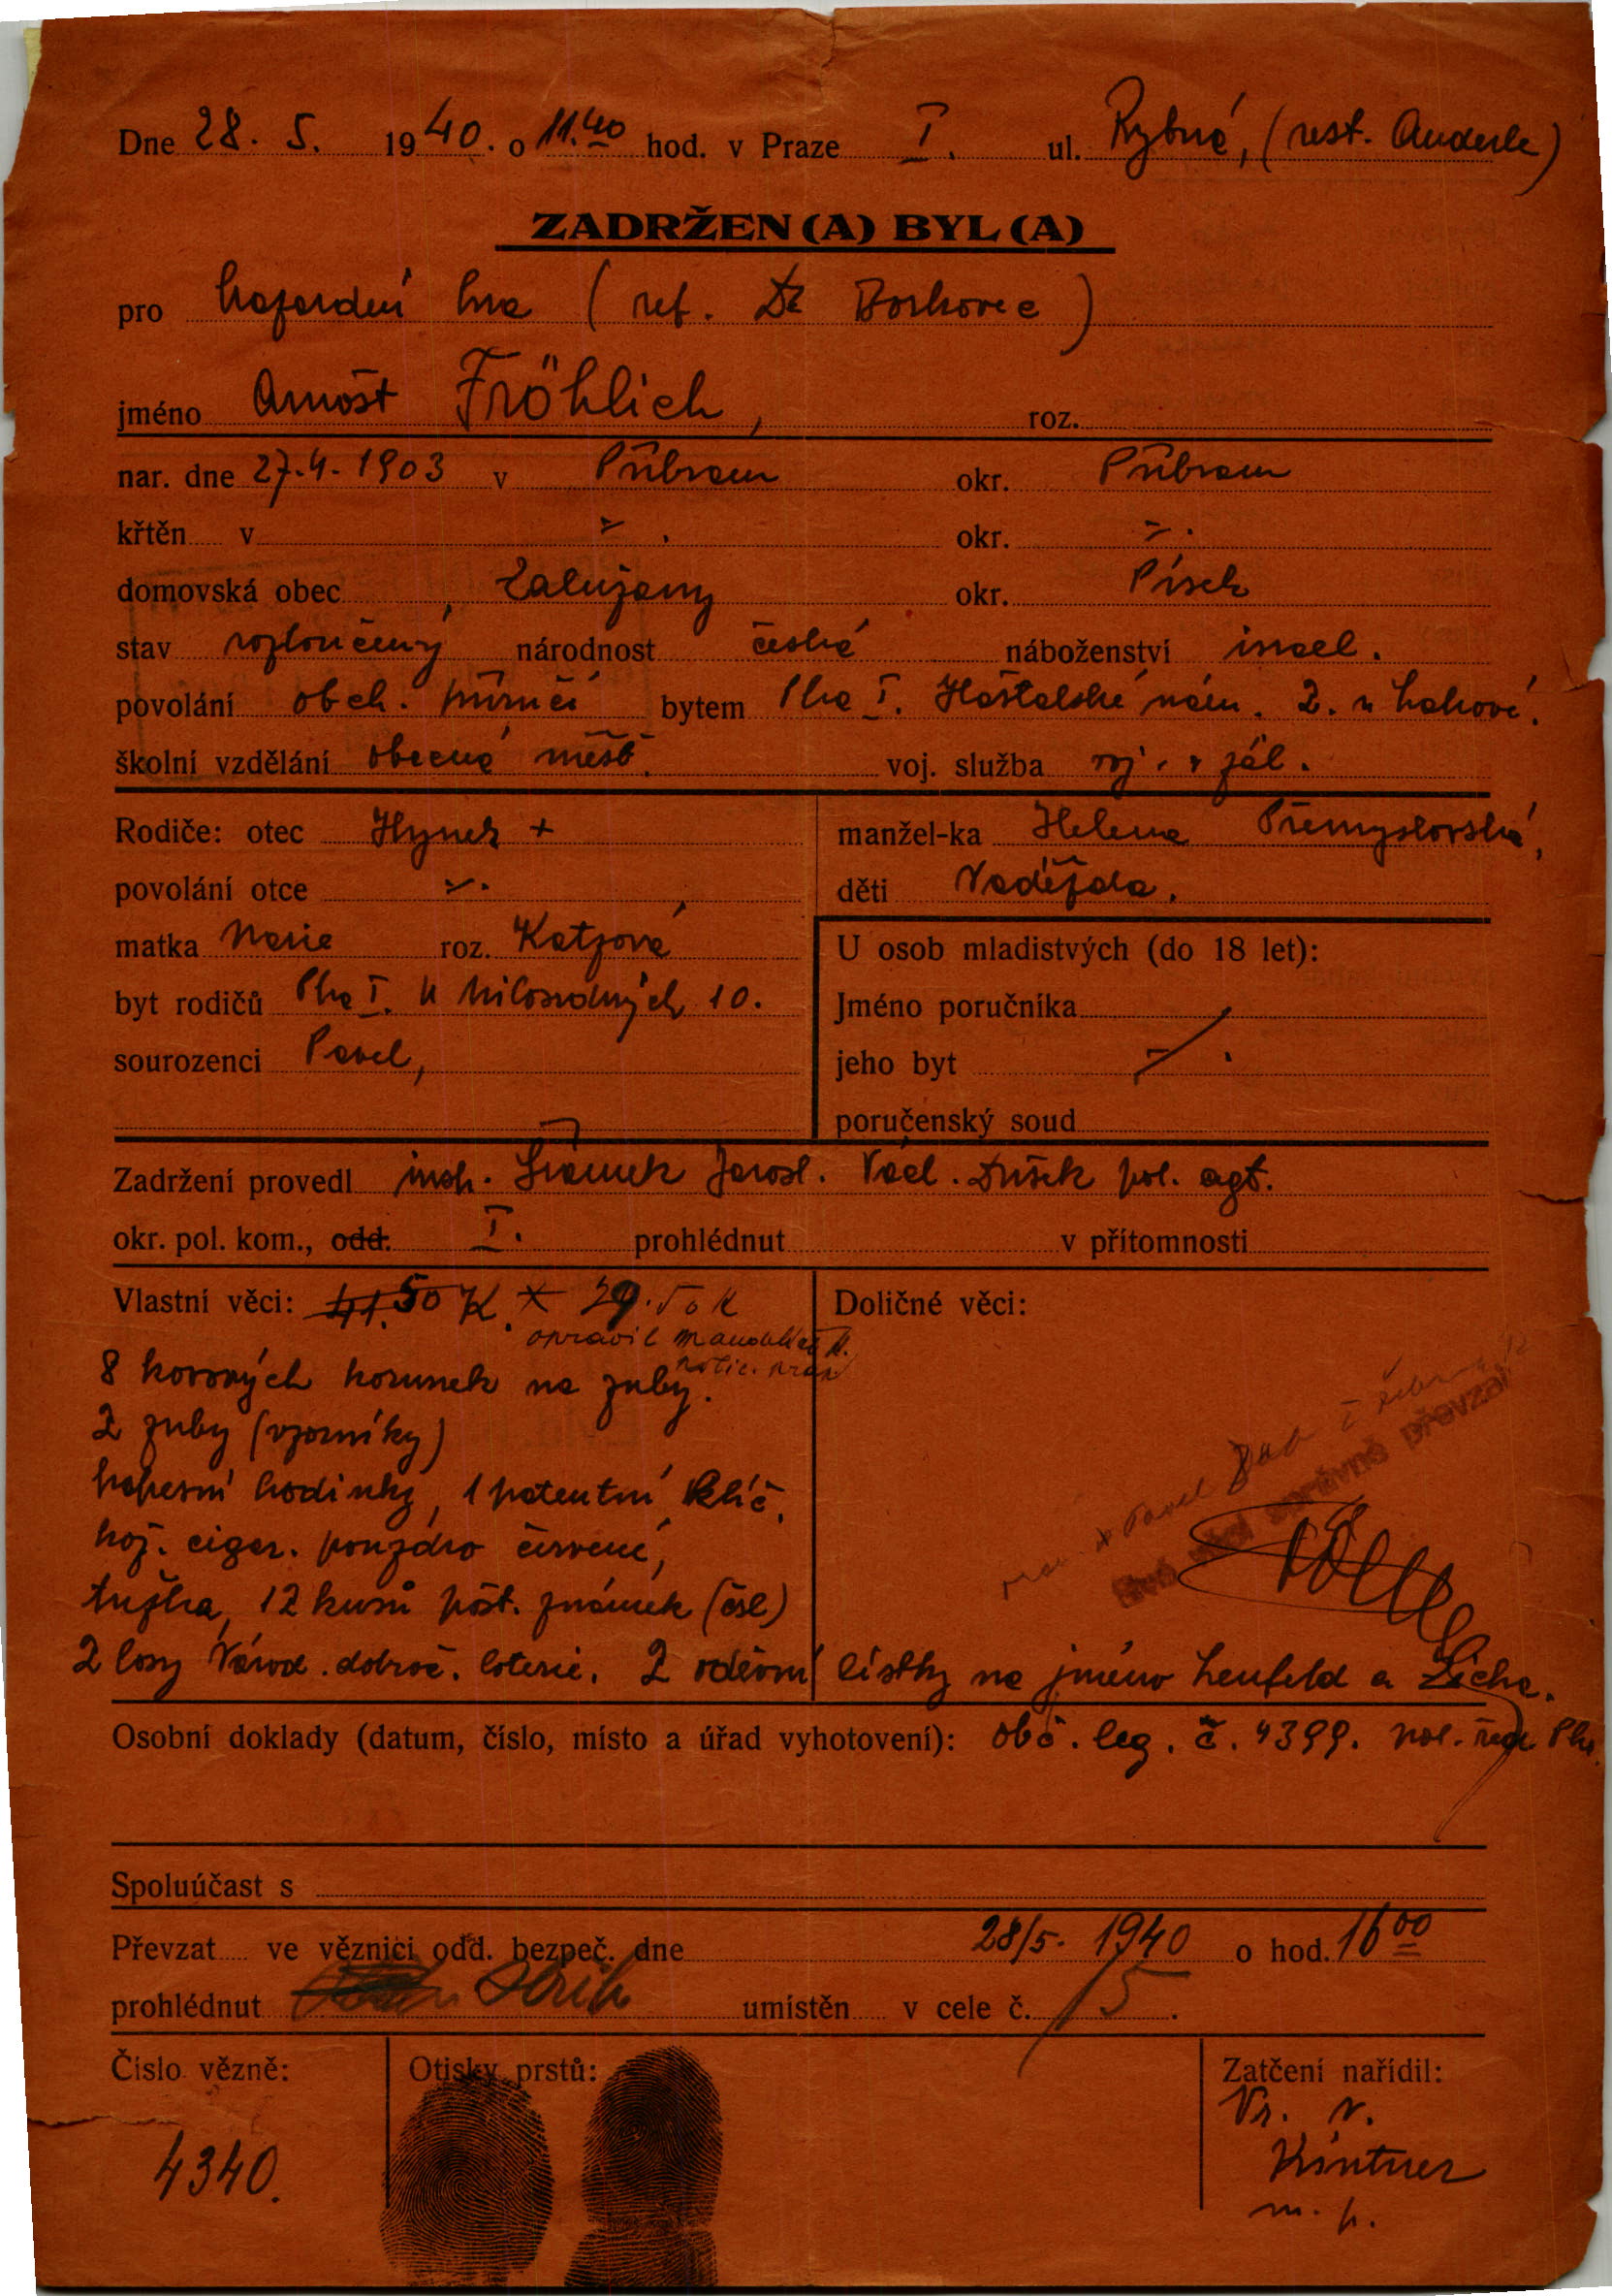 Dne 28. 5. 1940. o 11.40 hod. v Praze I. ul. Rybné, (rest. Anderle)
ZADRŽEN(A) BYL(A)
pro hazardní hra (ref. Dr Borkovec)
jméno Arnošt Fröhlich, roz.
nar. dne 27.4.1903 v Příbram okr. Příbram
křtěn v -. okr. -.
domovská obec Zalužany okr. Písek
stav rozloučený národnost česká náboženství israel.
povolání obch. příručí bytem Pha I. Haštalské nám. 2. u
školní vzdělání obecná měšť. voj. služba voj. v zál.
Rodiče: otec Hynek +
manžel-ka Helena Přemyslovská,
povolání otce -.
děti Naděžda.
matka Marie roz. Katzová
U osob mladistvých (do 18 let):
byt rodičů Pha I. U Milosrdných 10.
Jméno poručníka
sourozenci Pavel,
jeho byt -.
poručenský soud
Zadržení provedl insp. Šrámek Jarosl. Václ. Dušek pol. agt.
okr. pol. kom., odd. I. prohlédnut v přítomnosti
Vlastní věci: 41.50 K. x 29.50 K
Doličné věci:
opravil
8 kovových korunek na zuby.
2 zuby (vzorníky)
kapesní hodinky, 1 patentní klíč,
kož. cigar. pouzdro červené,
tužka, 12 kusů pošt. známek (čsl)
správně převzal
2 losy Národ. dobroč. loterie. 2 oděvní lístky na jméno Lenfeld a
Osobní doklady (datum, číslo, místo a úřad vyhotovení): obč. leg. č. 4399. pol. řed. Pha.
Spoluúčast s
Převzat ve věznici odd. bezpeč. dne 28/5. 1940 o hod. 16 00
prohlédnut umístěn v cele č. 15.
Číslo vězně:
Otisky prstů:
Zatčení nařídil:
Vr. r.
Kintner
m. p.
4340.